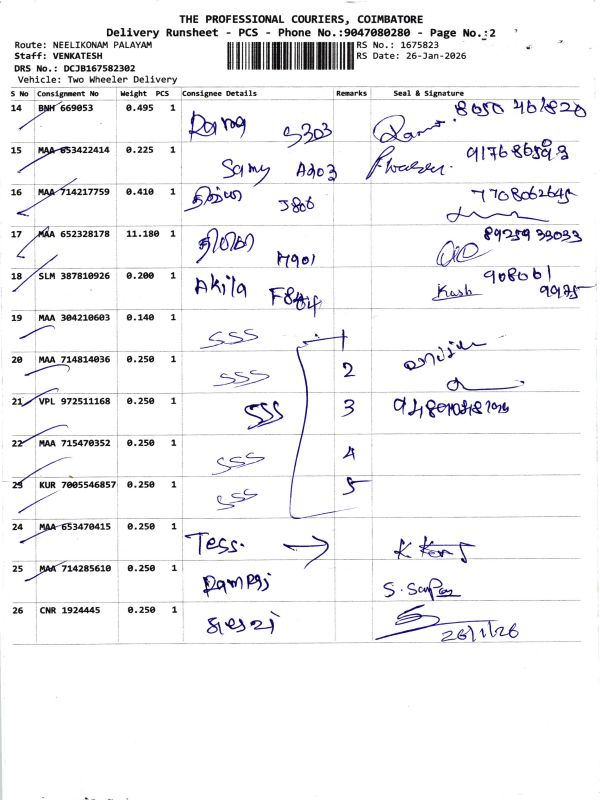 THE PROFESSIONAL COURIERS, COIMBATORE
Delivery Runsheet - PCS - Phone No.:9047080280 - Page No.:2
Route: NEELIKONAM PALAYAM RS No.: 1675823
Staff: VENKATESH RS Date: 26-Jan-2026
DRS No.: DCJB167582302
Vehicle: Two Wheeler Delivery
S No Consignment No Weight PCS Consignee Details Remarks Seal & Signature
14 BNH 669053 0.495 1 Rama S303
15 MAA 653422414 0.225 1 Samy A203
16 MAA 714217759 0.410 1 J806 7708062645
17 MAA 652328178 11.180 1 A901
18 SLM 387810926 0.200 1 Akila 908061
19 MAA 304210603 0.140 1 SSS 1
20 MAA 714814036 0.250 1 SSS 2
21 VPL 972511168 0.250 1 SSS 3
22 MAA 715470352 0.250 1 SSS 4
23 KUR 7005546857 0.250 1 SSS 5
24 MAA 653470415 0.250 1 Tess.
25 MAA 714285610 0.250 1
26 CNR 1924445 0.250 1 26/1/26